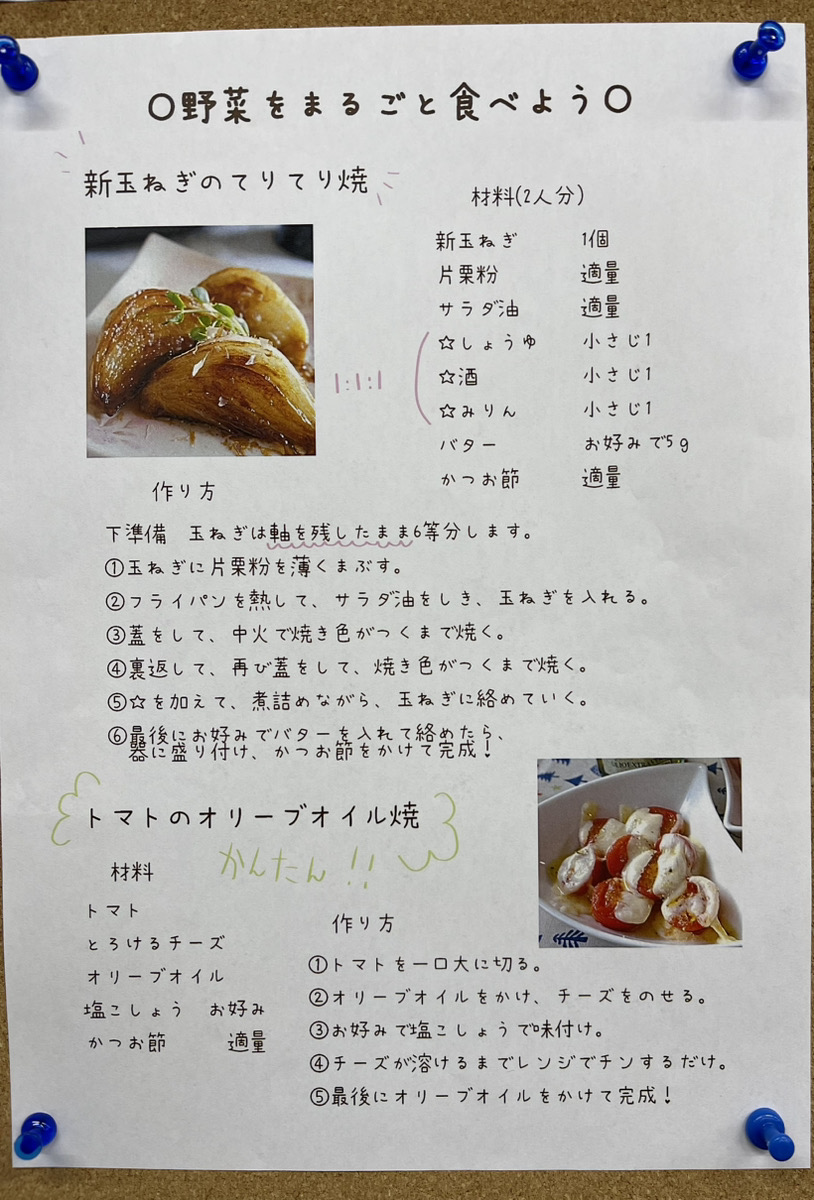 〇野菜をまるごと食べよう〇
新玉ねぎのてりてり焼
材料(2人分)
新玉ねぎ 1個
片栗粉 適量
サラダ油 適量
☆しょうゆ 小さじ1
☆酒 小さじ1
☆みりん 小さじ1
1:1:1
バター お好みで5g
かつお節 適量
作り方
下準備 玉ねぎは軸を残したまま6等分します。
①玉ねぎに片栗粉を薄くまぶす。
②フライパンを熱して、サラダ油をしき、玉ねぎを入れる。
③蓋をして、中火で焼き色がつくまで焼く。
④裏返して、再び蓋をして、焼き色がつくまで焼く。
⑤☆を加えて、煮詰めながら、玉ねぎに絡めていく。
⑥最後にお好みでバターを入れて絡めたら、
器に盛り付け、かつお節をかけて完成！
トマトのオリーブオイル焼
かんたん!!
材料
トマト
とろけるチーズ
オリーブオイル
塩こしょう お好み
かつお節 適量
作り方
①トマトを一口大に切る。
②オリーブオイルをかけ、チーズをのせる。
③お好みで塩こしょうで味付け。
④チーズが溶けるまでレンジでチンするだけ。
⑤最後にオリーブオイルをかけて完成！